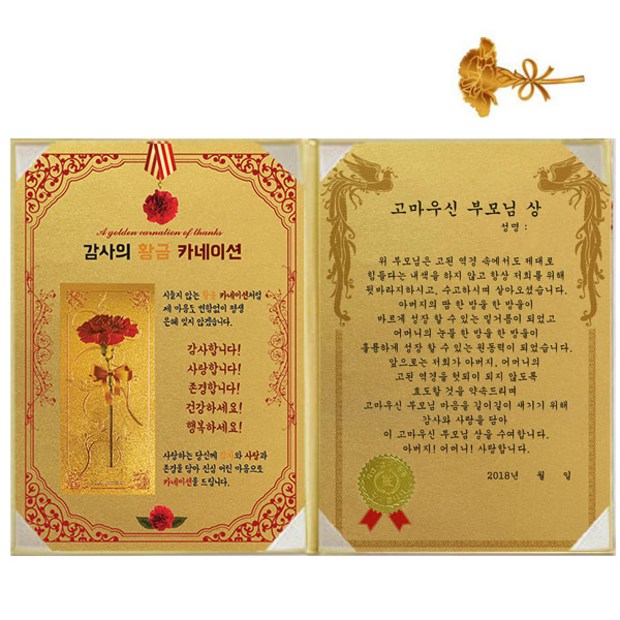 A golden carnation of thanks
감사의 황금 카네이션
시들지 않는 황금 카네이션처럼
제 마음도 변함없이 평생
은혜 잊지 않겠습니다.
감사합니다!
사랑합니다!
존경합니다!
건강하세요!
행복하세요!
사랑하는 당신께 감사와 사랑과
존경을 담아 진심 어린 마음으로
카네이션을 드립니다.
고마우신 부모님 상
성명 :
위 부모님은 고된 역경 속에서도 제대로
힘들다는 내색을 하지 않고 항상 저희를 위해
뒷바라지하시고, 수고하시며 살아오셨습니다.
아버지의 땀 한 방울 한 방울이
바르게 성장 할 수 있는 밑거름이 되었고
어머니의 눈물 한 방울 한 방울이
훌륭하게 성장 할 수 있는 원동력이 되었습니다.
앞으로는 저희가 아버지, 어머니의
고된 역경을 헛되이 되지 않도록
효도할 것을 약속드리며
고마우신 부모님 마음을 길이길이 새기기 위해
감사와 사랑을 담아
이 고마우신 부모님 상을 수여합니다.
아버지! 어머니! 사랑합니다.
2018년 월 일